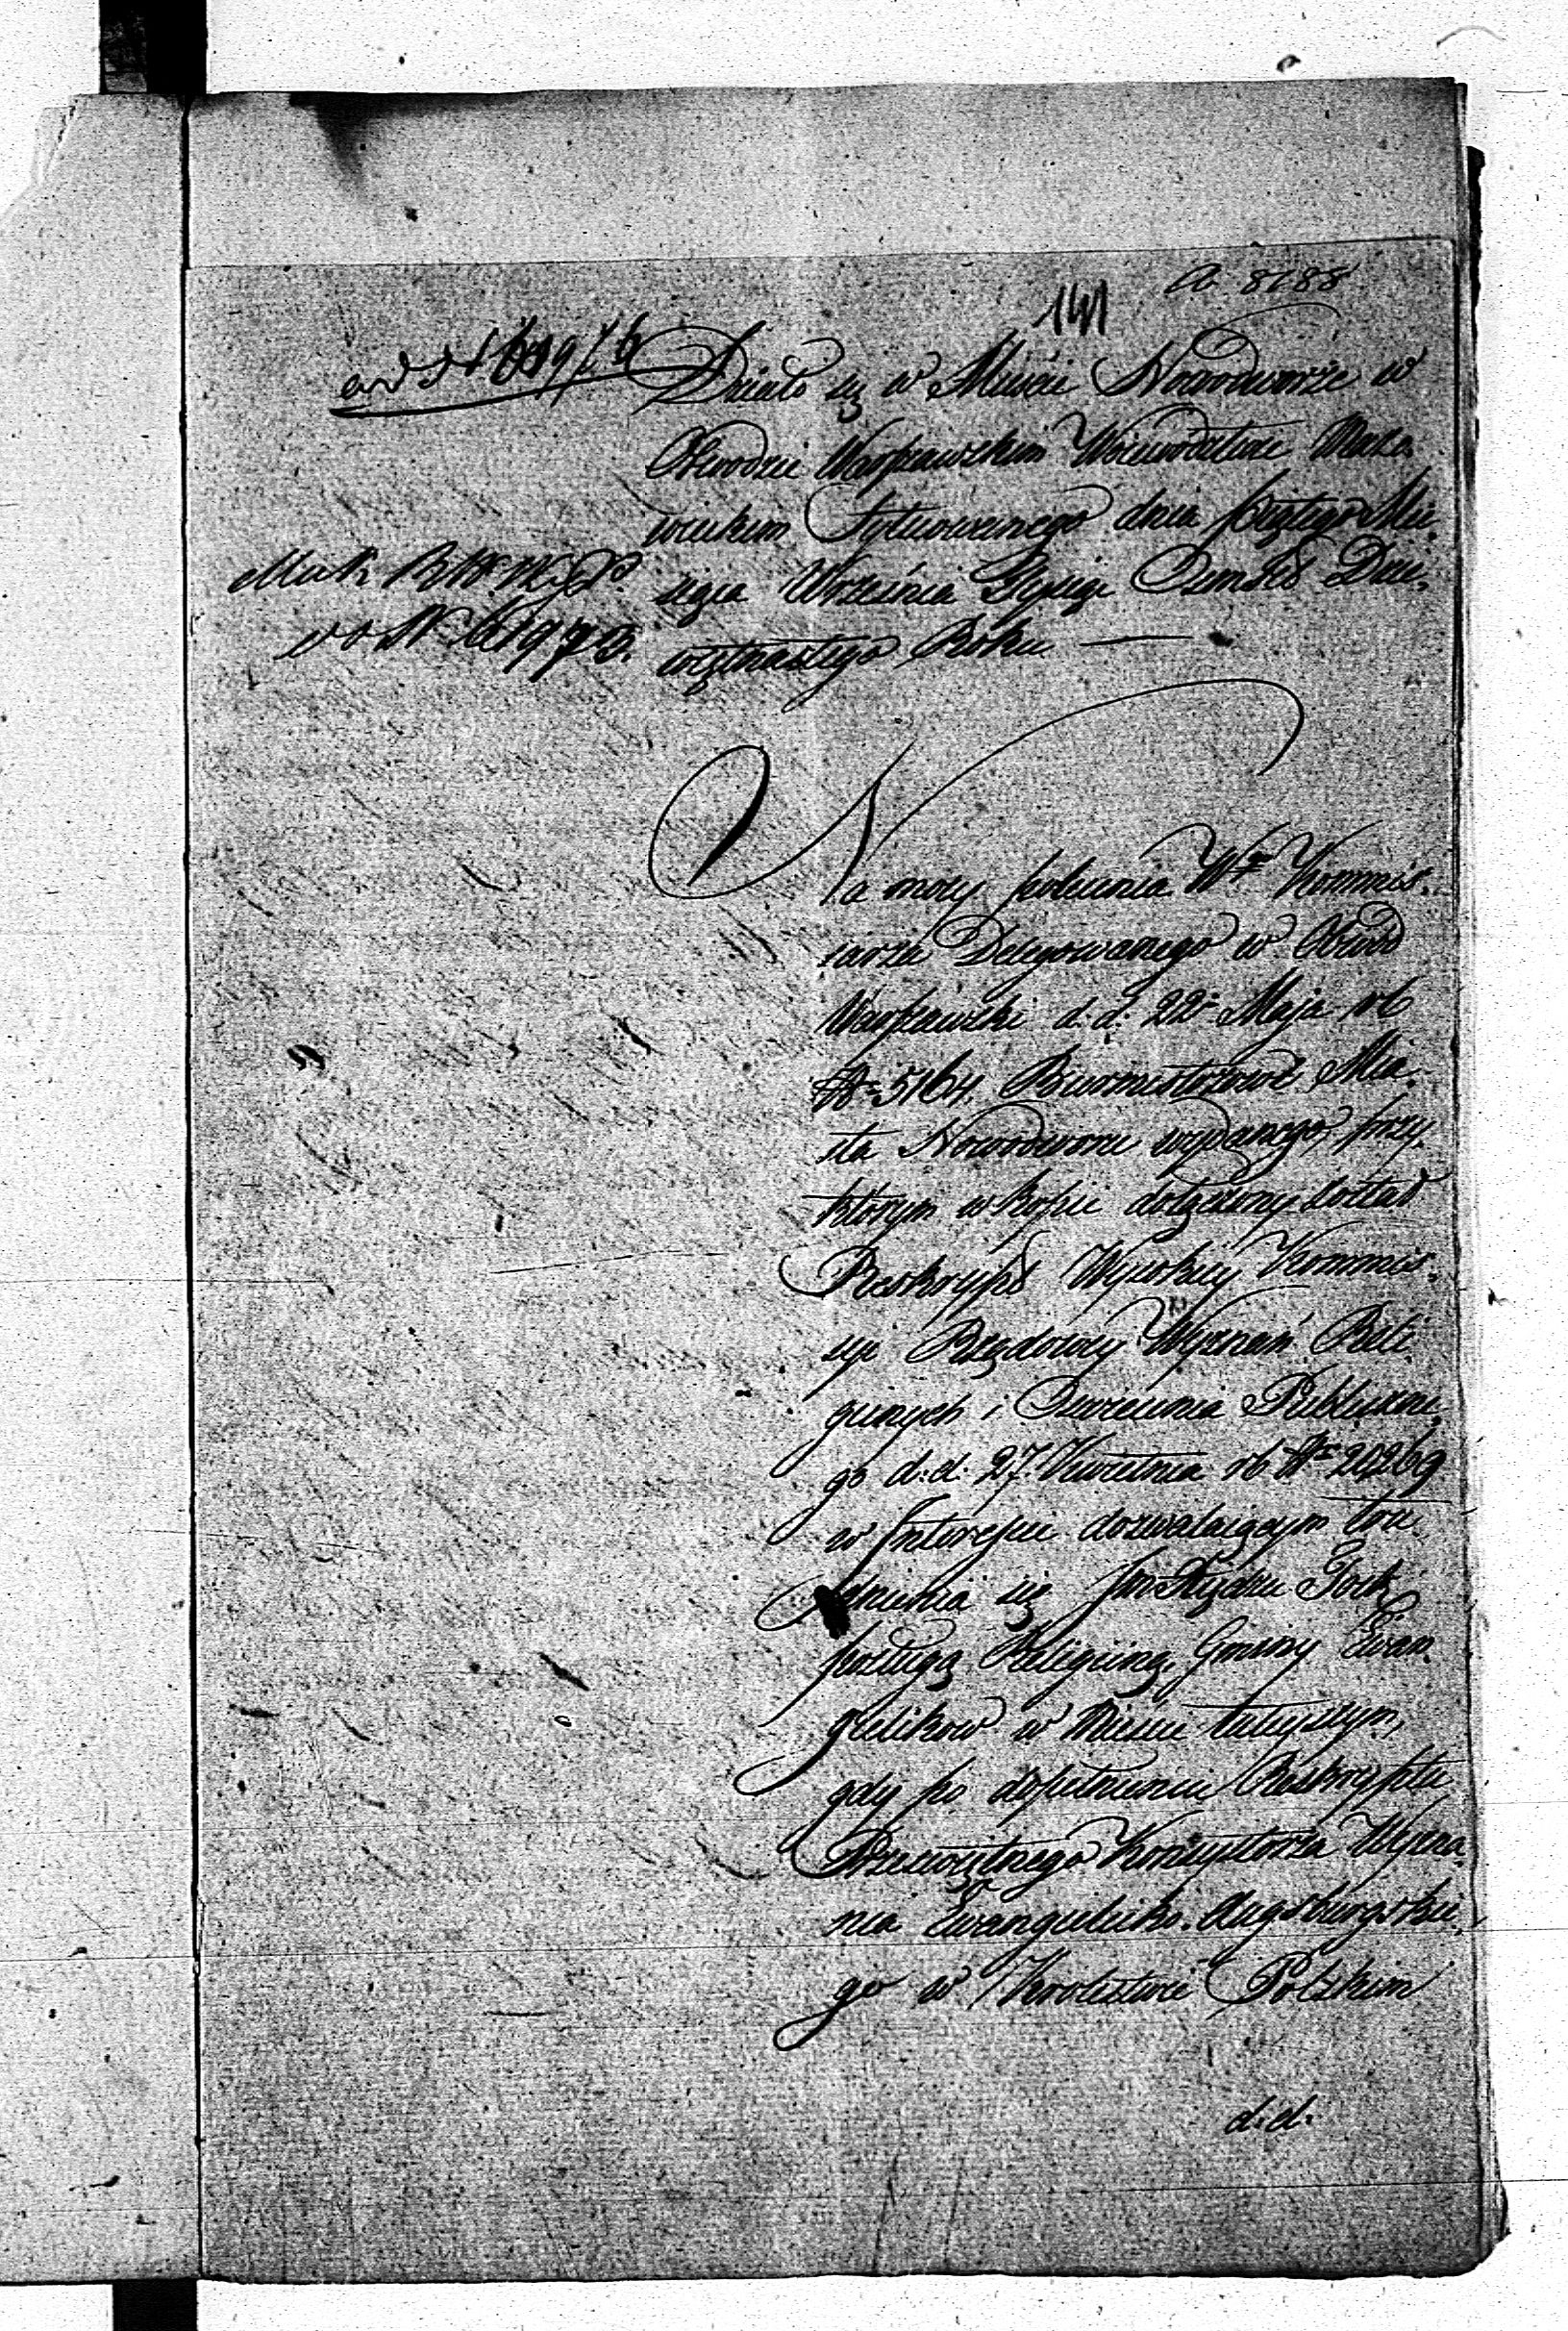 a 8188
141
Działo się w Mieście Nowodworze w
Obwodzie Warszawskim Woiewodztwie Mazo-
wieckim Sytuowanego dnia piątego Mie-
siąca Września Tysiąc Osmset Dzie-
więtnastego Roku
Na mocy polecenia Wº Kommis-
sarza Delegowanego w Obwód
Warszawski d. d. 22º Maja rb
Nº 5164. Burmistrzowi Mia-
sta Nowodworu wydanego, przy
którym w kopii dołączony został
Reskrypt Wysokiey Kommis-
syi Rządowey Wyznań Reli-
giinych i Oswiecenia Publiczne-
go d: d: 27. Kwietnia rb Nº 20269
w Interessie dozwalaiącym tru-
dnienia się
posługą Religiiną, Gminy Ewan-
gielików w Mieście tuteyszym,
gdy po dopełnieniu Reskryptu
Prześwietnego Konsystorza Wyzna-
nia Ewangelicko-Augsburgskie-
go w Krolestwie Polskim
d. d.